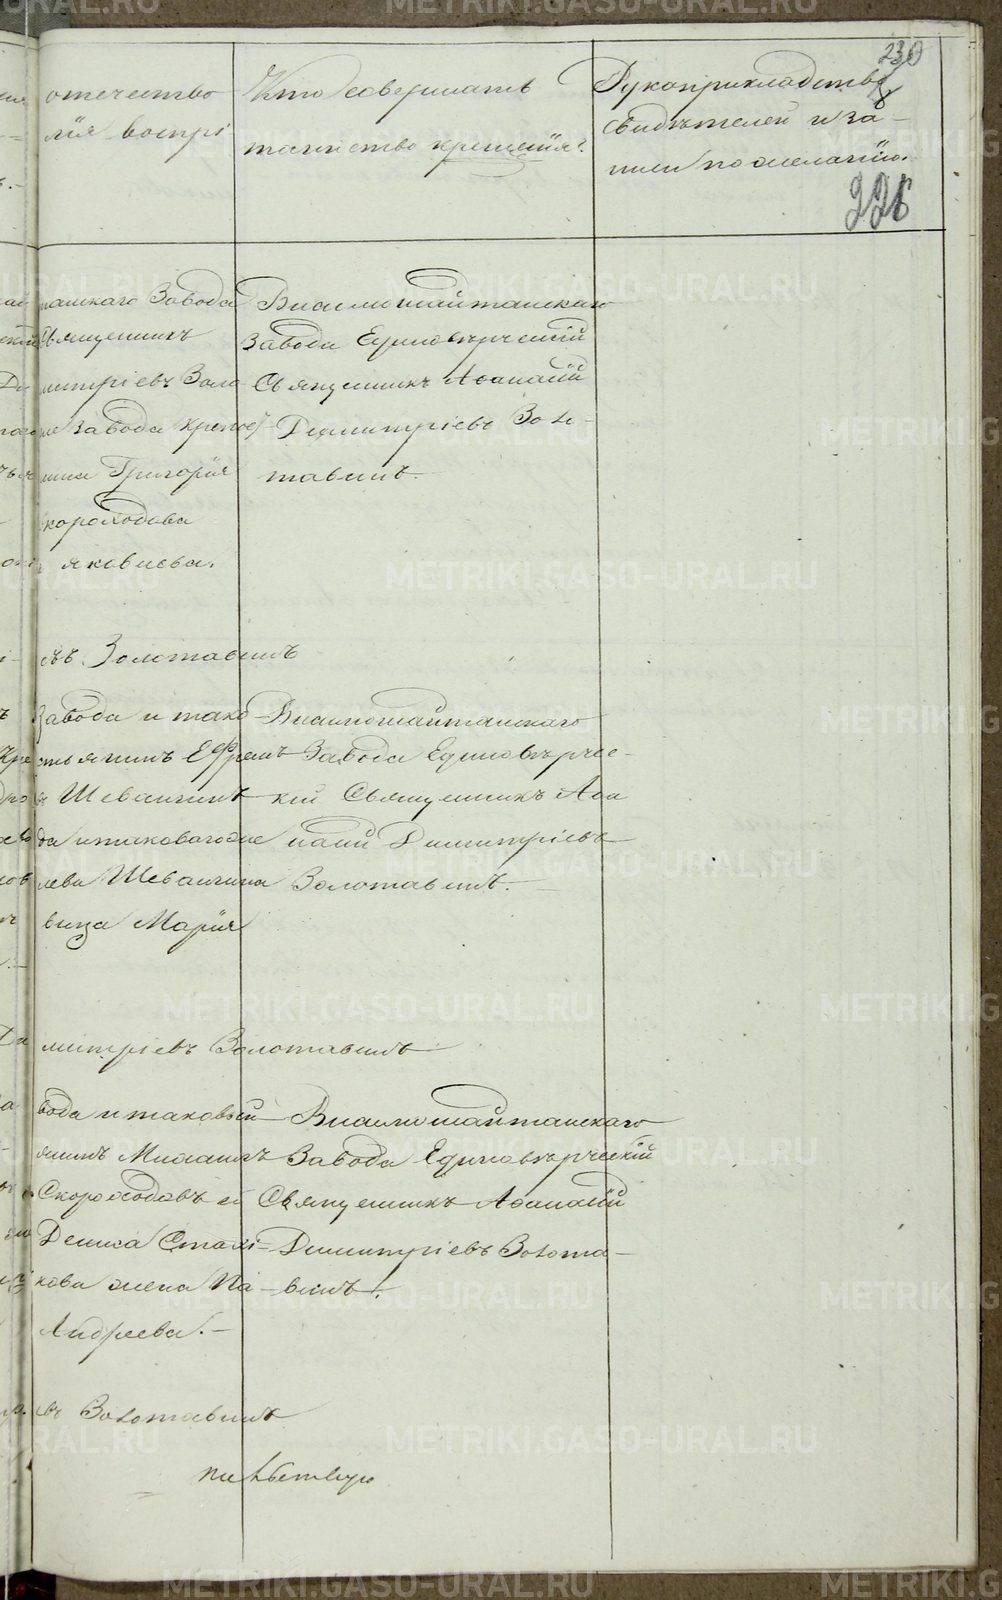 230
отечество
лія воспрі
Кто совершалъ
таинство крещенія?
Рукоприкладство
свидѣтелей и за-
писи по желанію.
228
тамскаго Завода
Священникъ
митріевъ Золо
завода крепос
Григорія
Скороходова
Яковлева.
Висимошайтанскаго
Завода Единовѣрческій
Священникъ Аѳанасій
Димитріевъ Золо-
тавинъ.
евъ Золотавинъ
Завода и тако
стьянинъ Ефремъ
Шевалгинъ
да и таковагоже
лева Шевалгина
вица Марія
Висимошайтанскаго
Завода Единовѣрчес-
кій Священникъ Аѳа
насій Димитріевъ
Золотавинъ.
митріевъ Золотавинъ
вода и таковый
янинъ Михаилъ
Скороходовъ и
Дениса Стахі
кова жена Па
Андреева.
Висимошайтанскаго
Завода Единовѣрческій
Священникъ Аѳанасій
Димитріевъ Золота-
винъ.
въ Золотавинъ
METRIKI.GASO-URAL.RU